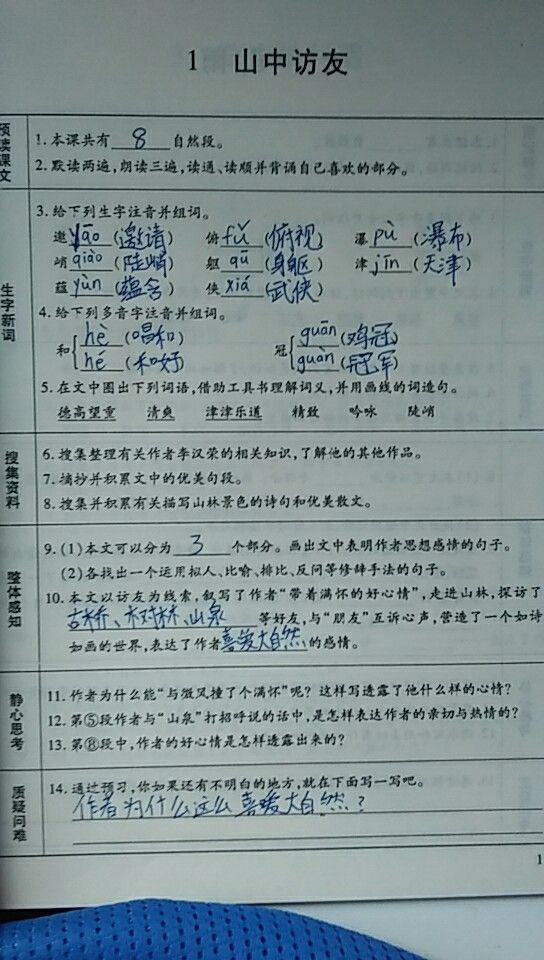 1 山中访友
预读课文
1.本课共有 8 自然段。
2.默读两遍,朗读三遍,读通、读顺并背诵自己喜欢的部分。
生字新词
3.给下列生字注音并组词。
邀 yāo (邀请) 俯 fǔ (俯视) 瀑 pù (瀑布)
峭 qiào (陡峭) 躯 qū (身躯) 津 jīn (天津)
蕴 yùn (蕴含) 侠 xiá (武侠)
4.给下列多音字注音并组词。
和 hè (唱和) 冠 guān (鸡冠)
hé (和好) guàn (冠军)
5.在文中圈出下列词语,借助工具书理解词义,并用画线的词造句。
德高望重 清爽 津津乐道 精致 吟咏 陡峭
搜集资料
6.搜集整理有关作者李汉荣的相关知识,了解他的其他作品。
7.摘抄并积累文中的优美句段。
8.搜集并积累有关描写山林景色的诗句和优美散文。
整体感知
9.(1)本文可以分为 3 个部分。画出文中表明作者思想感情的句子。
(2)各找出一个运用拟人、比喻、排比、反问等修辞手法的句子。
10.本文以访友为线索,叙写了作者“带着满怀的好心情”,走进山林,探访了
古桥、树林、山泉 等好友,与“朋友”互诉心声,营造了一个如诗
如画的世界,表达了作者喜爱大自然的感情。
静心思考
11.作者为什么能“与微风撞了个满怀”呢?这样写透露了他什么样的心情?
12.第⑤段作者与“山泉”打招呼说的话中,是怎样表达作者的亲切与热情的?
13.第⑧段中,作者的好心情是怎样透露出来的?
质疑问难
14.通过预习,你如果还有不明白的地方,就在下面写一写吧。
作者为什么这么喜爱大自然?
1